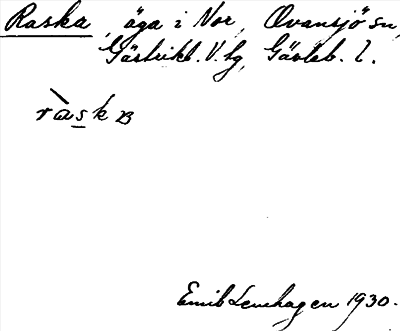 Raska, äga i Nor, Ovansjö sn,
Gästrikl. V. tg, Gävleb. l.
ràskɐ
Emil Levehagen 1930.